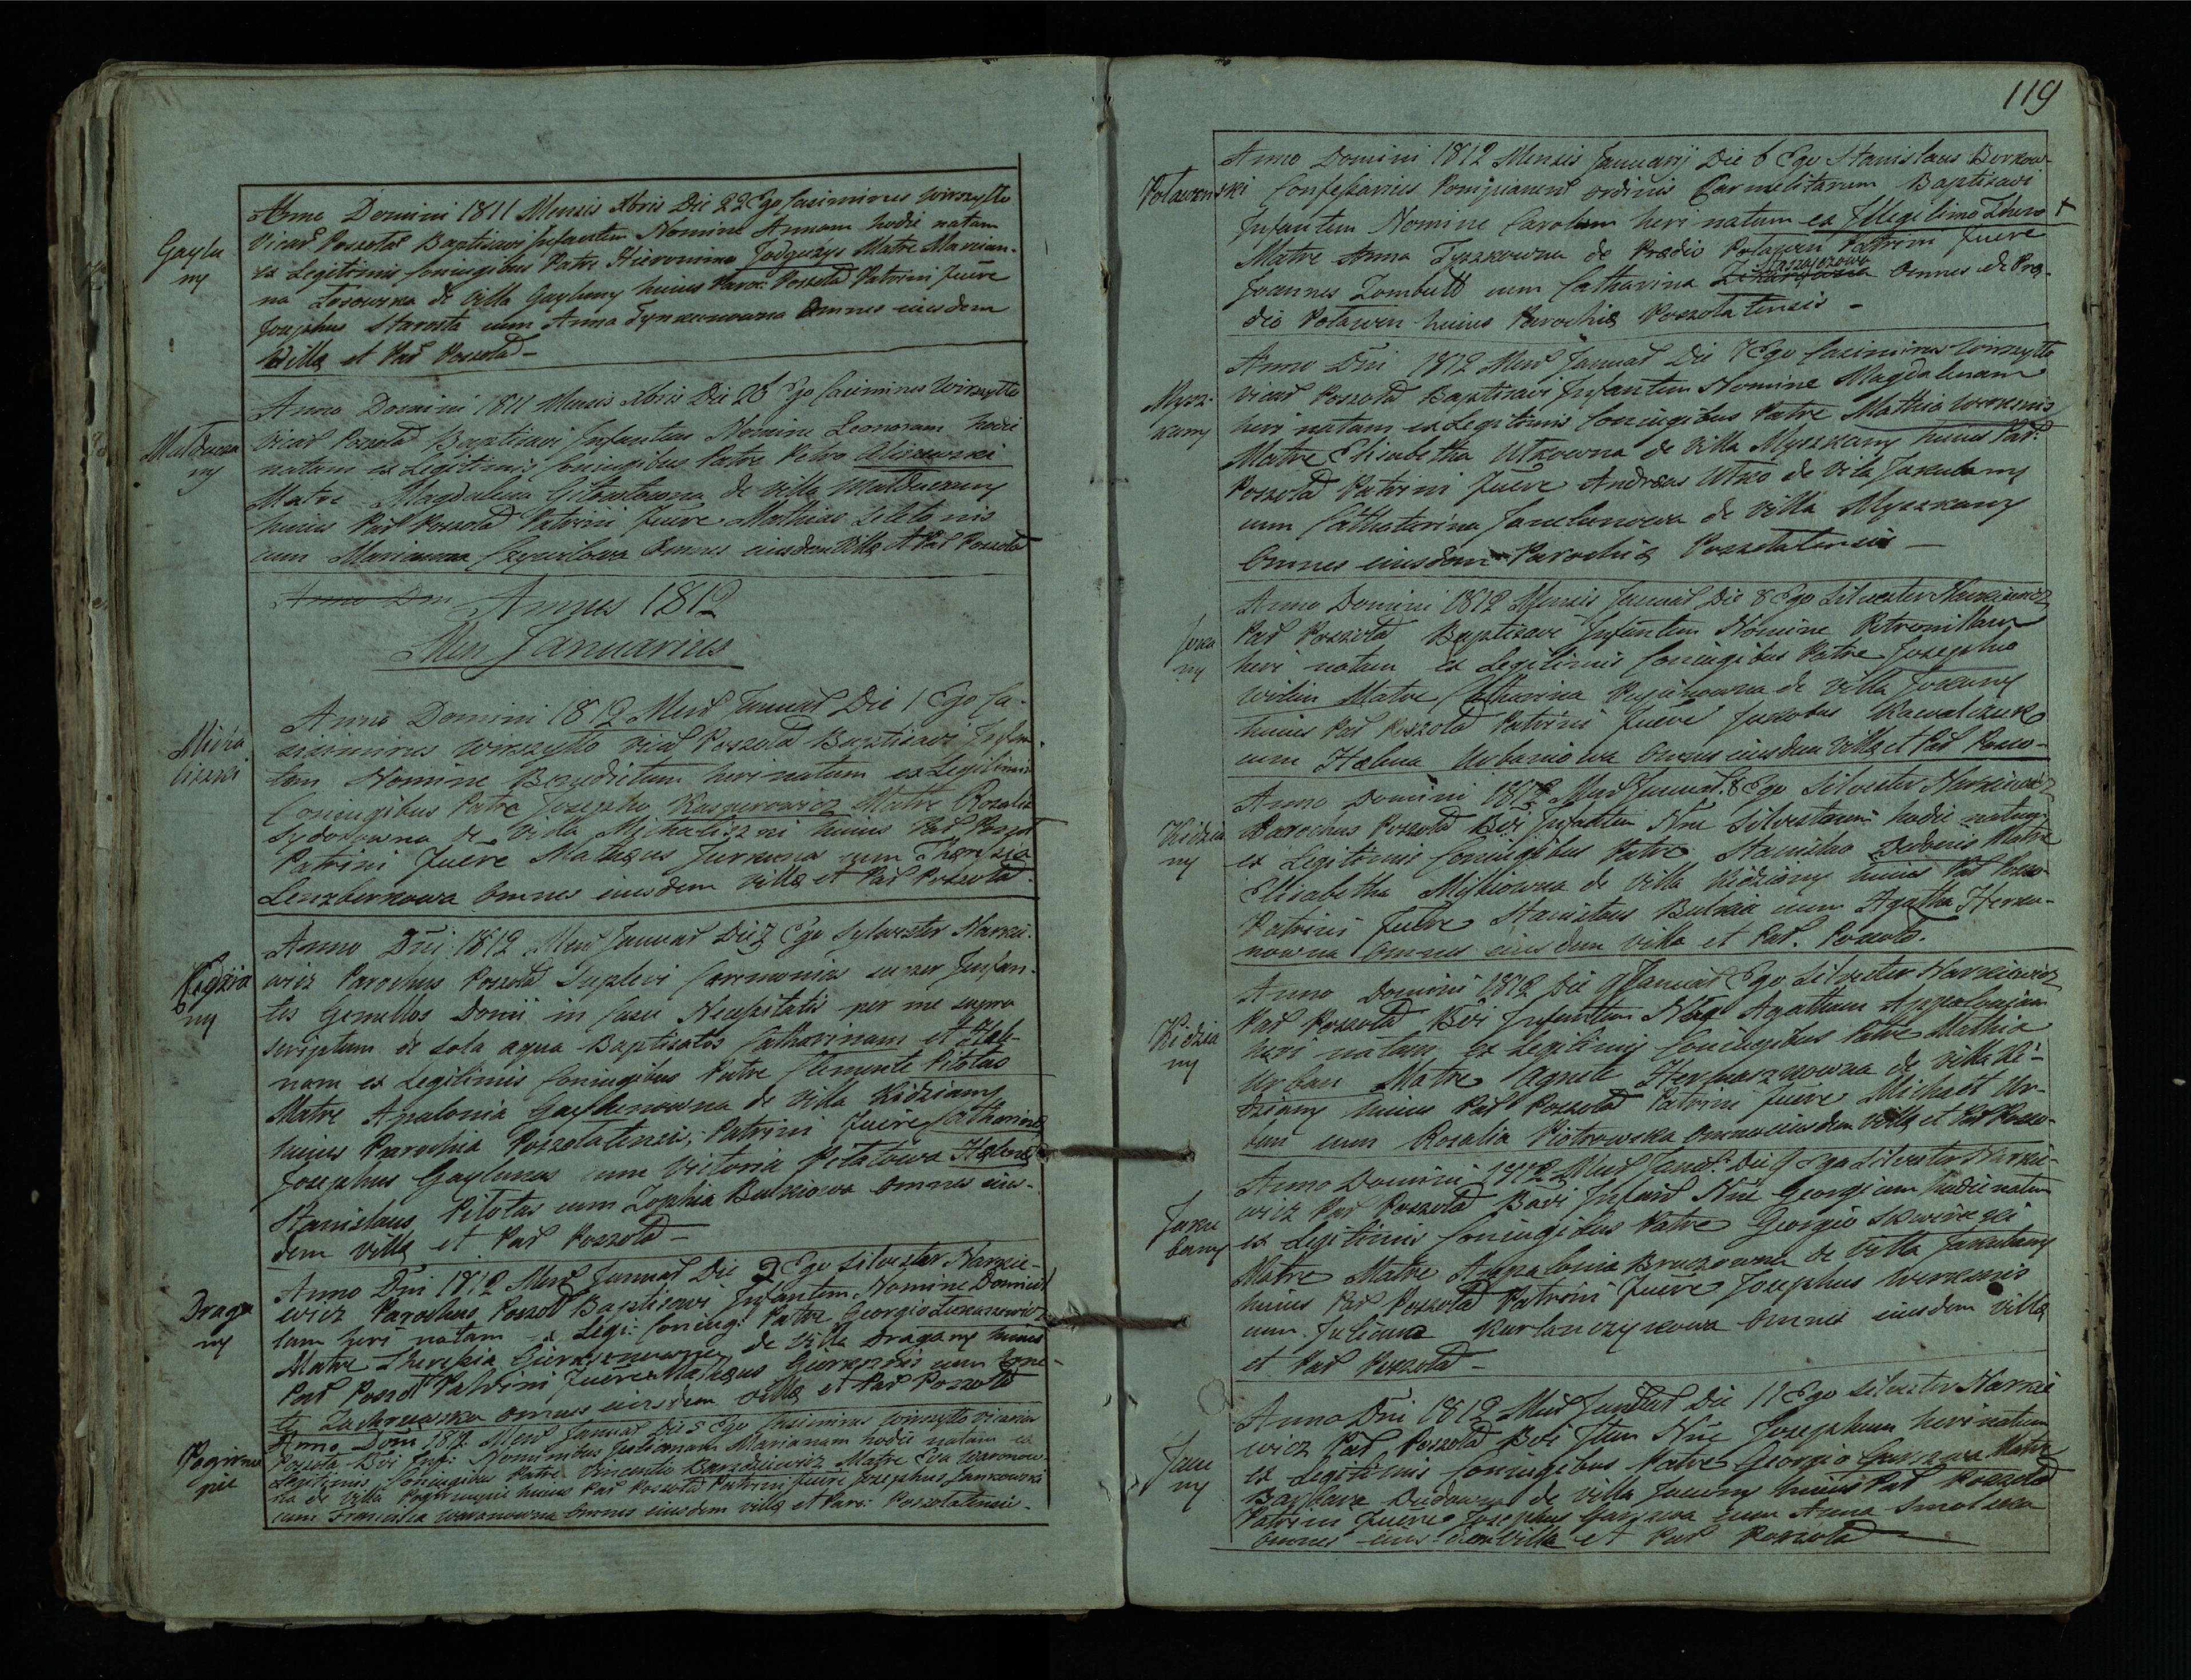 Gaylu
ny
Anno Domini 1811 Mensis Xbris Die 22 Ego Casimirus Wirszytto
Vicar Poszolat Baptisavi Infantem Nomine Annam hodie natam
ex Legitimis Coniugibus Patre Hieronimo Matre Marian-
na de Villa Gayluny huius Paroc: Poszolat Patrini fuere
Josephus Starosta cum Anna Omnes eiusdem
Villæ et Par Poszolat –
ny
Anno Domini 1811 Mensis Xbris Die 26 Ego Casimirus Wirszytto
Vicar Poszolat Baptisavi Infantem Nomine Leonoram hodie
natam ex Legitimis Coniugibus Patre Petro
Matre Magdalena de Villa
huius Par Poszolat Patrini fuere Mathias
cum Marianna Omnes eiusdem Villæ et Par Poszolat
Anno Dni Annus 1812
Men Januarius
Micha
liszki
Anno Domini 1812 Mens Januar Die 1 Ego Ca-
simirus Wirszytto Vicar Poszolat Baptisavi Infan-
tem Nomine Benedictum heri natum ex Legitimis
Coniugibus Patre Josepho Kasperowicz Matre Rosalia
de Villa Michaliszki huius Par Poszol
Patrini fuere Matheus cum Theresia
Lenzberkowa Omnes eiusdem Villæ et Par Poszolat
Kidzia
ny
Anno Dni 1812 Mens Januar Die 2 Ego Sylvester Narkie-
wicz Parochus Poszolat Suplevi Ceremonias super Infan-
tes Gemellos Domi in Casu Necessitatis per me supra
scriptum de sola aqua Baptisatos Catharinam et Hele-
nam ex Legitimis Coniugibus Patre Clemente Pitotas
Matre Apalonia Gaylunowna de Villa Kidziany
huius Parochiæ Poszolatensis, Patrini fuere Catharinæ
Josephus Gaylunas cum Victoria Helenæ
Stanislaus Pitotas cum Zophia Bulkiowa Omnes eius-
dem Villæ et Par Poszolat –
Draga
ny
Anno Dni 1812 Mens Januar Die 2 Ego Silvester Narkie-
wicz Parochus Poszol Baptisavi Infantem Nomine Domicel
lam heri natam ex Legi: Coniug: Patre Georgio
Matre Theressia de Villa Dragany huius
Par Poszol Patrini fuere Matheus cum
Omnes eiusdem Villæ et Par Poszolat
Anno Dom 1812 Mens Januar Die 5 Ego Casimirus Wirszytto Vicarius
Poszola Bvi Inf: Nominibus Justinam Mariannam hodie natam ex
Legitimis Coniugibus Patre Vincentio Matre Eva Waronow-
na de Villa huius Par Poszolat Patrini fuere Josephus Jankowski
cum Francisca Waronowna Omnes eiusdem Villæ et Paro: Poszolatensis –
119
Anno Domini 1812 Mensis Januarij Die 6 Ego Stanislaus Berkow-
ski Confessarius Pompianens ordinis Carmelitarum Baptisavi
Infantem Nomine Carolum heri natum ex Illegitimo Thoro +
Matre Anna Tyszkowna de Prædio Polawen Patrini fuere
Joannes Dombutt cum Catharina Omnes de Præ-
dio Polawen huius Parochiæ Poszolatensis –
Mysz-
kany
Anno Dni 1812 Mens Januar Die 7 Ego Casimirus Wirszytto
Vicar Poszolat Baptisavi Infantem Nomine Magdalenam
heri natam ex Legitimis Coniugibus Patre Mathia
Matre Elisabetha Utkowna de Villa Myszkany huius Par:
Poszolat Patrini fuere Andreas Utko de Vila Jakubany
cum Cathatarina de Villa Myszkany
Omnes eiusdem Parochiæ Poszolatensis –
ny
Anno Domini 1812 Mensis Januar Die 8 Ego Silvester Narkiewicz
Par Poszolat Baptisavi Infantem Nomine Petronillam
heri natam ex Legitimis Coniugibus Patre Josepho
Matre Catharina de Villa
huius Par Poszolat Patrini fuere Jakobus Kawalczuk
cum Halena Urbaniowa Omnes eiusdem Villæ et Par Poszo-
Kidzia
ny
Anno Domini 1812 Mens Januar. 8 Ego Silvester Narkiewicz
Parochus Poszolat Bvi Infantem Nne Silvestrum hodie natum
ex Legitimis Coniugibus Patre Stanislao Matre
Elisabetha de Villa Kidziany huius Par Poszo-
Patrini fuere Stanislaus Bulkia cum Agatha
nowna Omnes eiusdem Villæ et Par. Poszolat.
Kidzia
ny
Anno Domini 1812 Die 9 Januar Ego Silvester Narkiewicz
Par Poszolat Bvi Infantem Nne Agatham Appoloniam
heri natam ex Legitimis Coniugibus Patre Mathia
Urban Matre Agnete de Villa Ki-
dziany huius Par Poszolat Patrini fuere Michael Ur-
ban cum Rosalia Piotrowska Omnes eiusdem Villæ et Par Poszo-
Jaku
bany
Anno Domini 1812 Mens Janr: Die 9 Ego Silvester Narkie-
wicz Par Poszolat Bavi Infant Nne Georgium hodie natum
ex Legitimis Coniugibus Patre Georgio
Matre Matre Appalonia de Villa Jakubany
huius Par Poszolat Patrini fuere Josephus
cum Juliana Omnes eiusdem Villæ
et Par Poszolat –
ny
Anno Dni 1812 Mens Januar Die 11 Ego Silvester Narkie
wicz Par Poszolat Bvi Nne Josephum heri natum
ex Legitimis Coniugibus Patre Georgio Matre
Barbara de Villa huius Par Poszolat
Patrini fuere Josephus cum Anna
Omnes eiusdem Villæ et Par Poszolat